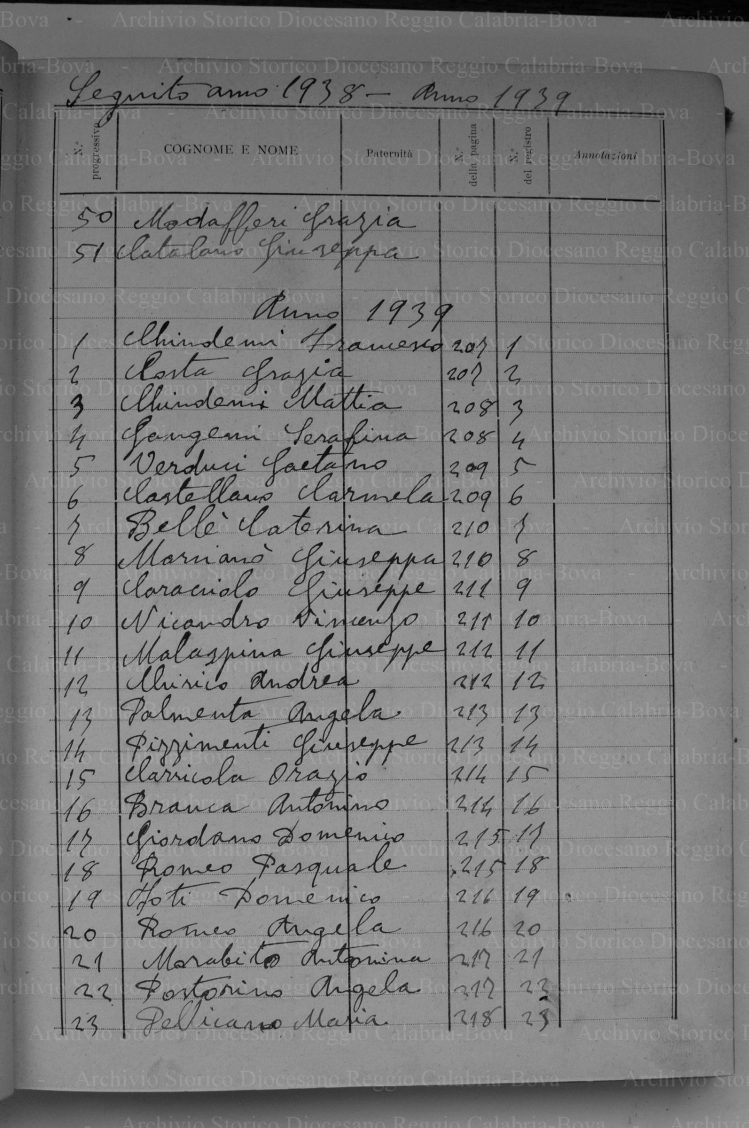 Seguito anno 1938 - Anno 1939
N.° progressivo COGNOME E NOME Paternità N.° della pagina N.° del registro Annotazioni
50 Modafferi Grazia
51 Catalano Giuseppa
Anno 1939
1 Chindemi Francesco 207 1
2 Costa Grazia 207 2
3 Chindemi Mattia 208 3
4 Gangemi Serafina 208 4
5 Verduci Gaetano 209 5
6 Castellano Carmela 209 6
7 Bellè Caterina 210 7
8 Marrianò Giuseppa 210 8
9 Caracciolo Giuseppe 211 9
10 Nicandro Vincenzo 211 10
11 Malaspina Giuseppe 212 11
12 Chirico Andrea 212 12
13 Palmenta Angela 213 13
14 Pizzimenti Giuseppe 213 14
15 Carricola Orazio 214 15
16 Branca Antonino 214 16
17 Giordano Domenico 215 17
18 Romeo Pasquale 215 18
19 Foti Domenico 216 19
20 Romeo Angela 216 20
21 Morabito Antonina 217 21
22 Postorino Angela 217 22
23 Pellicano Maria 218 23
Archivio Storico Diocesano Reggio Calabria-Bova